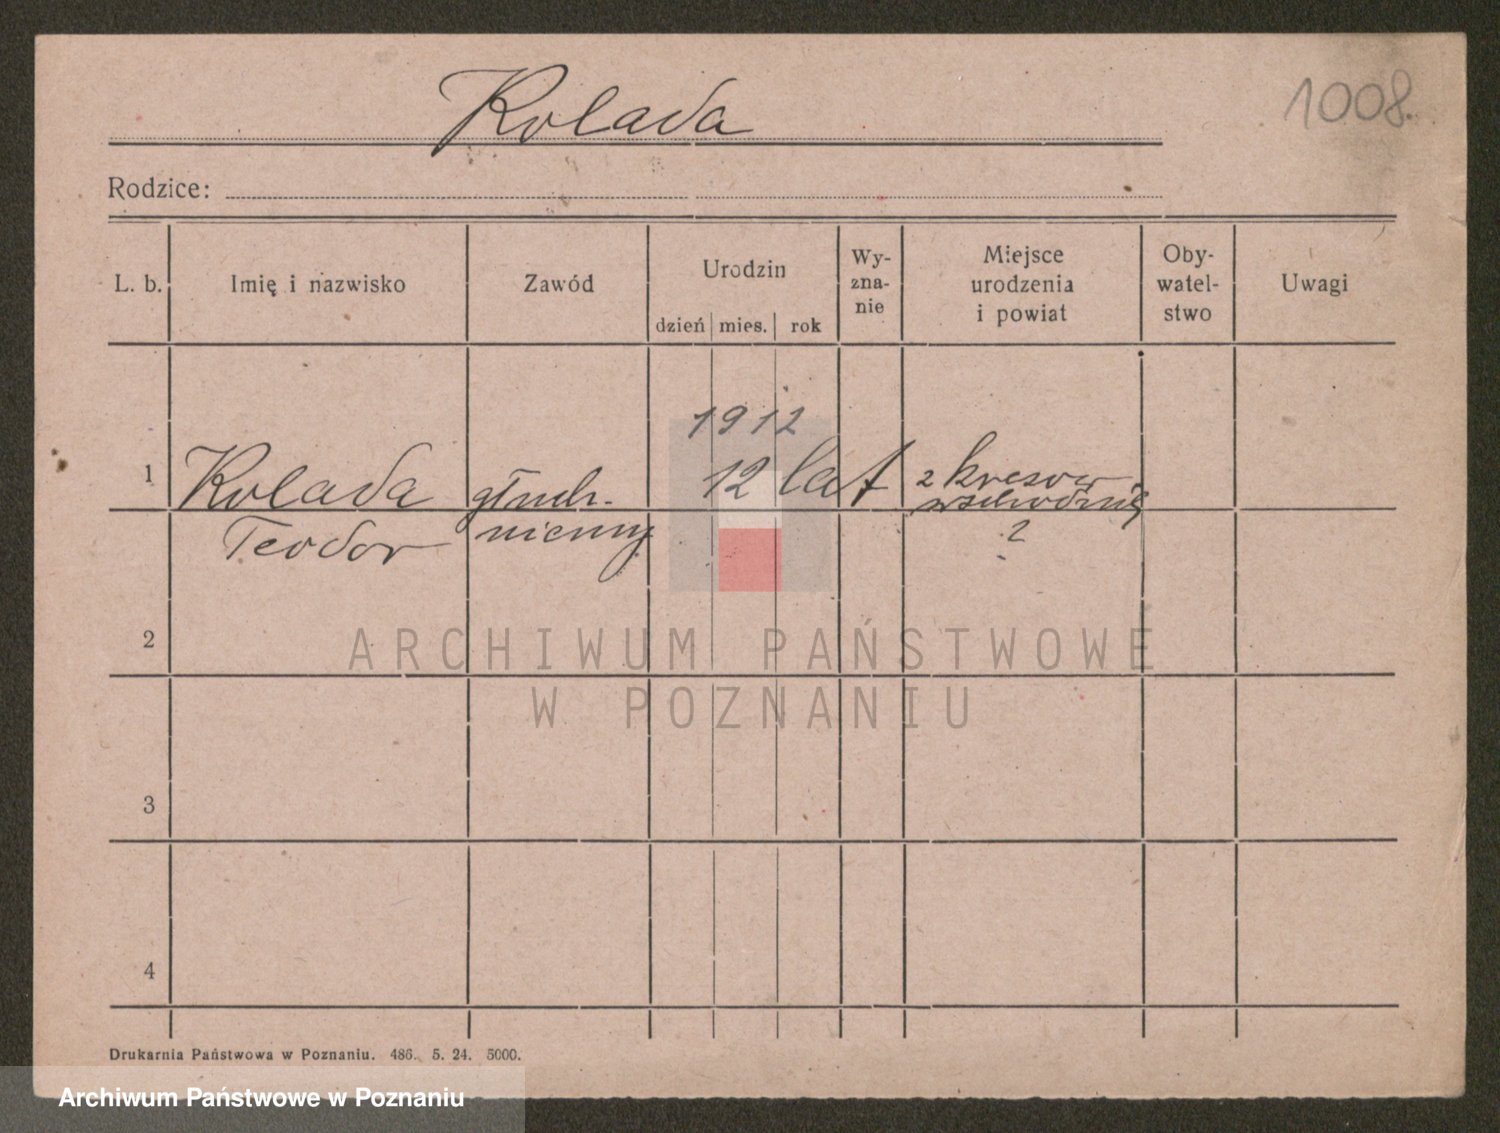 Kolada
1008.
Rodzice:
L. b.
Imię i nazwisko
Zawód
Urodzin
dzień mies. rok
Wy-
zna-
nie
Miejsce
urodzenia
i powiat
Oby-
watel-
stwo
Uwagi
1912
1 Kolada głucho- 12 lat z kresów
Teodor niemy wschodnich
?
2
3
4
ARCHIWUM PAŃSTWOWE
W POZNANIU
Drukarnia Państwowa w Poznaniu. 486. 5. 24. 5000.
Archiwum Państwowe w Poznaniu